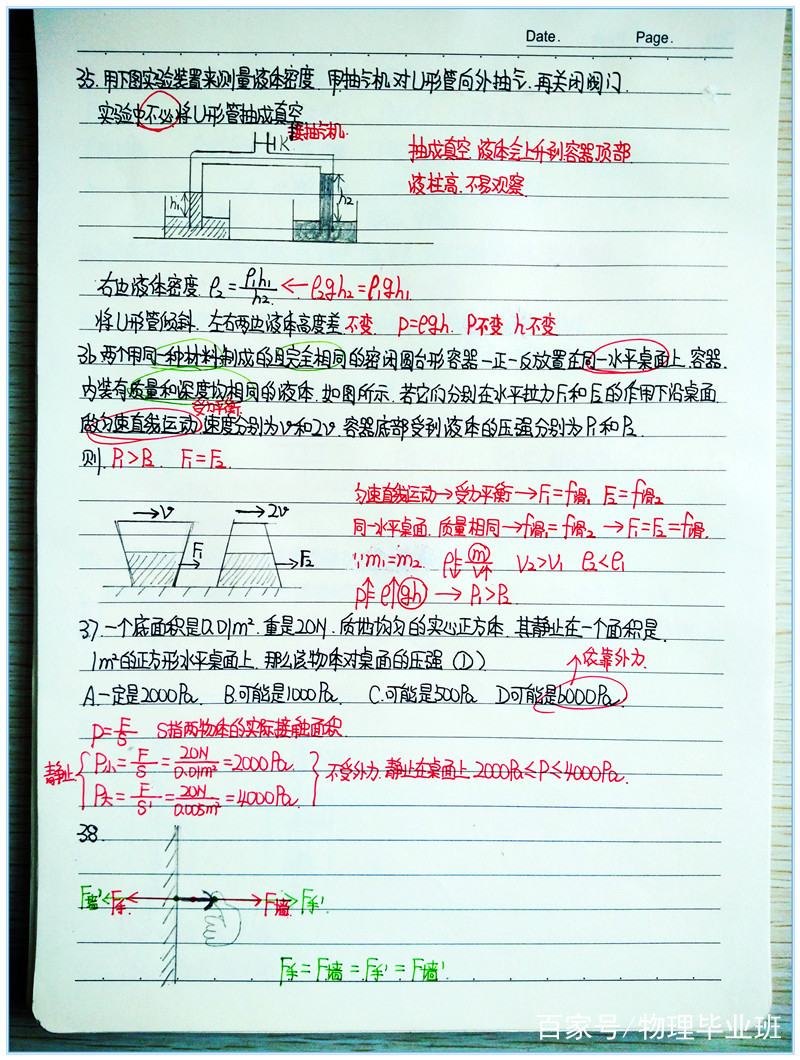 Date. Page.
35. 用下图实验装置来测量液体密度 用抽气机对U形管向外抽气. 再关闭阀门.
实验中不必将U形管抽成真空
接抽气机.
K
抽成真空. 液体会上升到容器顶部
液柱高. 不易观察
h₁
h₂
右边液体密度 ρ₂=ρ₁h₁/h₂. ← ρ₂gh₂=ρ₁gh₁.
将U形管倾斜. 左右两边液体高度差 不变. p=ρgh. P不变 h不变
36 两个用同一种材料制成的且完全相同的密闭圆台形容器一正一反放置在同一水平桌面上. 容器.
内装有质量和深度均相同的液体. 如图所示. 若它们分别在水平拉力F₁和F₂的作用下沿桌面
受力平衡.
做匀速直线运动 速度分别为v和2v. 容器底部受到液体的压强分别为P₁和P₂.
则 P₁>P₂. F₁=F₂.
匀速直线运动→受力平衡→F₁=f滑₁ F₂=f滑₂
→v →2v
同一水平桌面. 质量相同→f滑₁=f滑₂ →F₁=F₂=f滑.
F₁ F₂
∵m₁=m₂ ρ↓=m/V↑ V₂>V₁ ρ₂<ρ₁
p↑=ρ↑gh → P₁>P₂
37. 一个底面积是0.01m². 重是20N. 质地均匀的实心正方体. 其静止在一个面积是.
1m²的正方形水平桌面上. 那么该物体对桌面的压强 (D)
依靠外力.
A.一定是2000Pa. B.可能是1000Pa. C.可能是500Pa D可能是6000Pa.
P=F/S S指两物体的实际接触面积.
静止
P小=F/S=20N/0.01m²=2000Pa.
P大=F/S'=20N/0.005m²=4000Pa
不受外力. 静止在桌面上 2000Pa≤P≤4000Pa.
38.
F墙' F手. F墙. F手'
F手=F墙=F手'=F墙'
百家号/物理毕业班